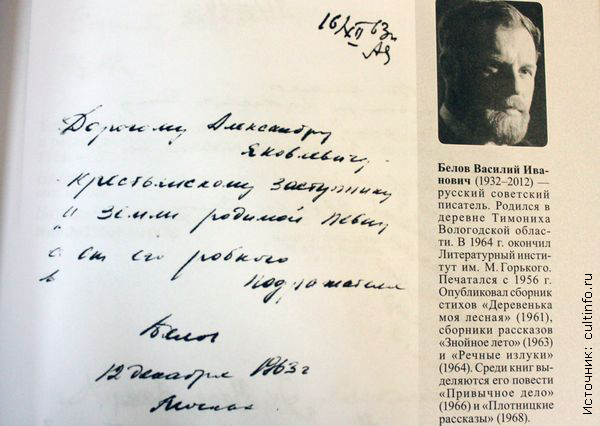 16/XII 63 г.
АЯ
Дорогому Александру
Яковлевичу,
крестьянскому заступнику
и земли родимой певцу
от его робкого
подражателя
Белов
12 декабря 1963 г
Москва
Белов Василий Ива-
нович (1932–2012) —
русский советский
писатель. Родился в
деревне Тимониха
Вологодской облас-
ти. В 1964 г. окончил
Литературный инсти-
тут им. М. Горького.
Печатался с 1956 г.
Опубликовал сборник
стихов «Деревенька
моя лесная» (1961),
сборники рассказов
«Знойное лето» (1963)
и «Речные излуки»
(1964). Среди книг вы-
деляются его повести
«Привычное дело»
(1966) и «Плотницкие
рассказы» (1968).
Источник: cultinfo.ru